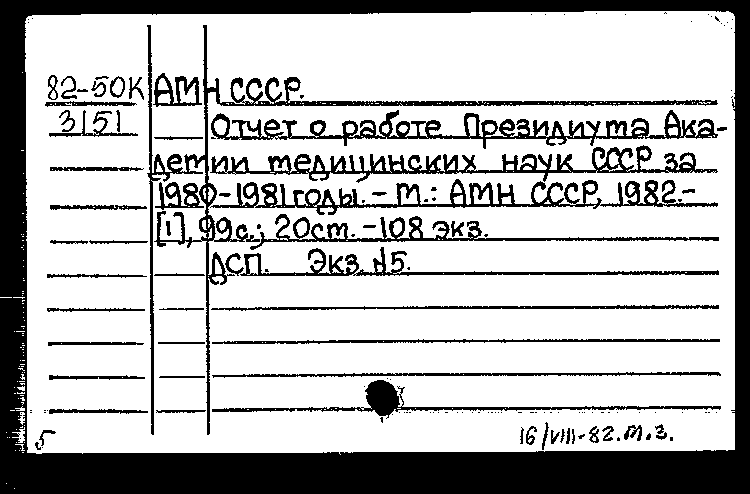 82-50К АМН СССР.
3151 Отчет о работе Президиума Ака-
демии медицинских наук СССР за
1980-1981 годы. - М.: АМН СССР, 1982.-
[1], 99 с.; 20 см. - 108 экз.
ДСП. Экз. №5.
5 16/VIII-82. м.з.